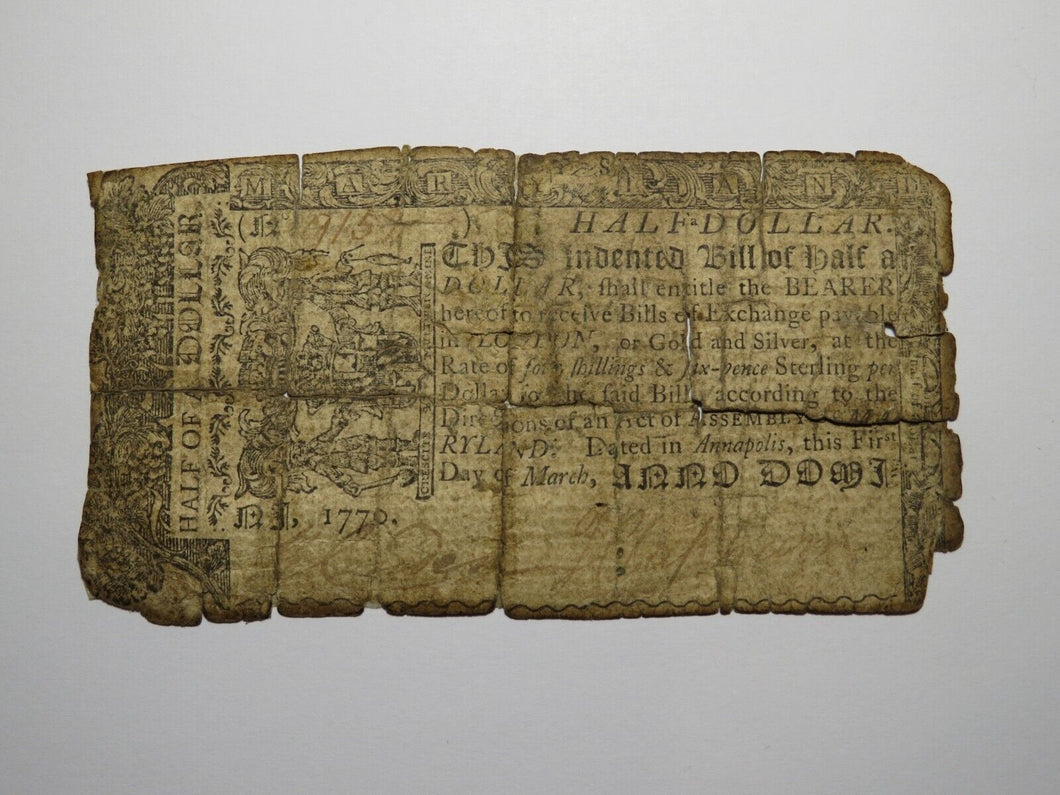 MARYLAND
HALF OF A DOLLAR
(No 9157 .)
HALF a DOLLAR.
THIS indented Bill of Half a
DOLLAR, shall entitle the BEARER
hereof to receive Bills of Exchange payable
in LONDON, or Gold and Silver, at the
Rate of four shillings & six-pence Sterling per
Dollar for the said Bill, according to the
Directions of an Act of ASSEMBLY of MA-
RYLAND. Dated in Annapolis, this First
Day of March, ANNO DOMI-
NI, 1770.
CRESCITE